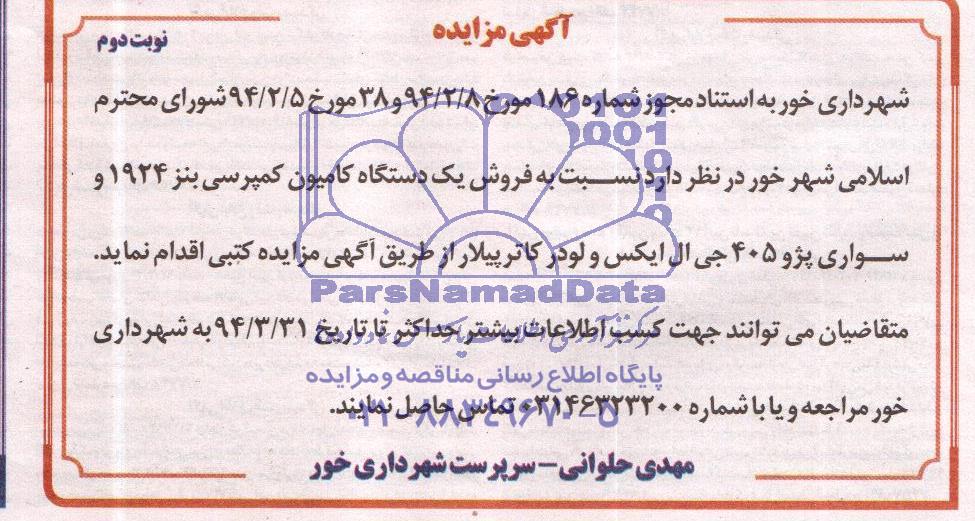 آگهی مزایده
نوبت دوم
شهرداری خور به استناد مجوز شماره ۱۸۶ مورخ ۹۴/۲/۸ و ۳۸ مورخ ۹۴/۲/۵ شورای محترم
اسلامی شهر خور در نظر دارد نسبت به فروش یک دستگاه کامیون کمپرسی بنز ۱۹۲۴ و
سواری پژو ۴۰۵ جی ال ایکس و لودر کاترپیلار از طریق آگهی مزایده کتبی اقدام نماید.
ParsNamadData
متقاضیان می توانند جهت کسب اطلاعات بیشتر حداکثر تا تاریخ ۹۴/۳/۳۱ به شهرداری
پایگاه اطلاع رسانی مناقصه و مزایده
خور مراجعه و یا با شماره ۰۳۱۴۶۳۲۳۲۰۰ تماس حاصل نمایند.
مهدی حلوانی – سرپرست شهرداری خور